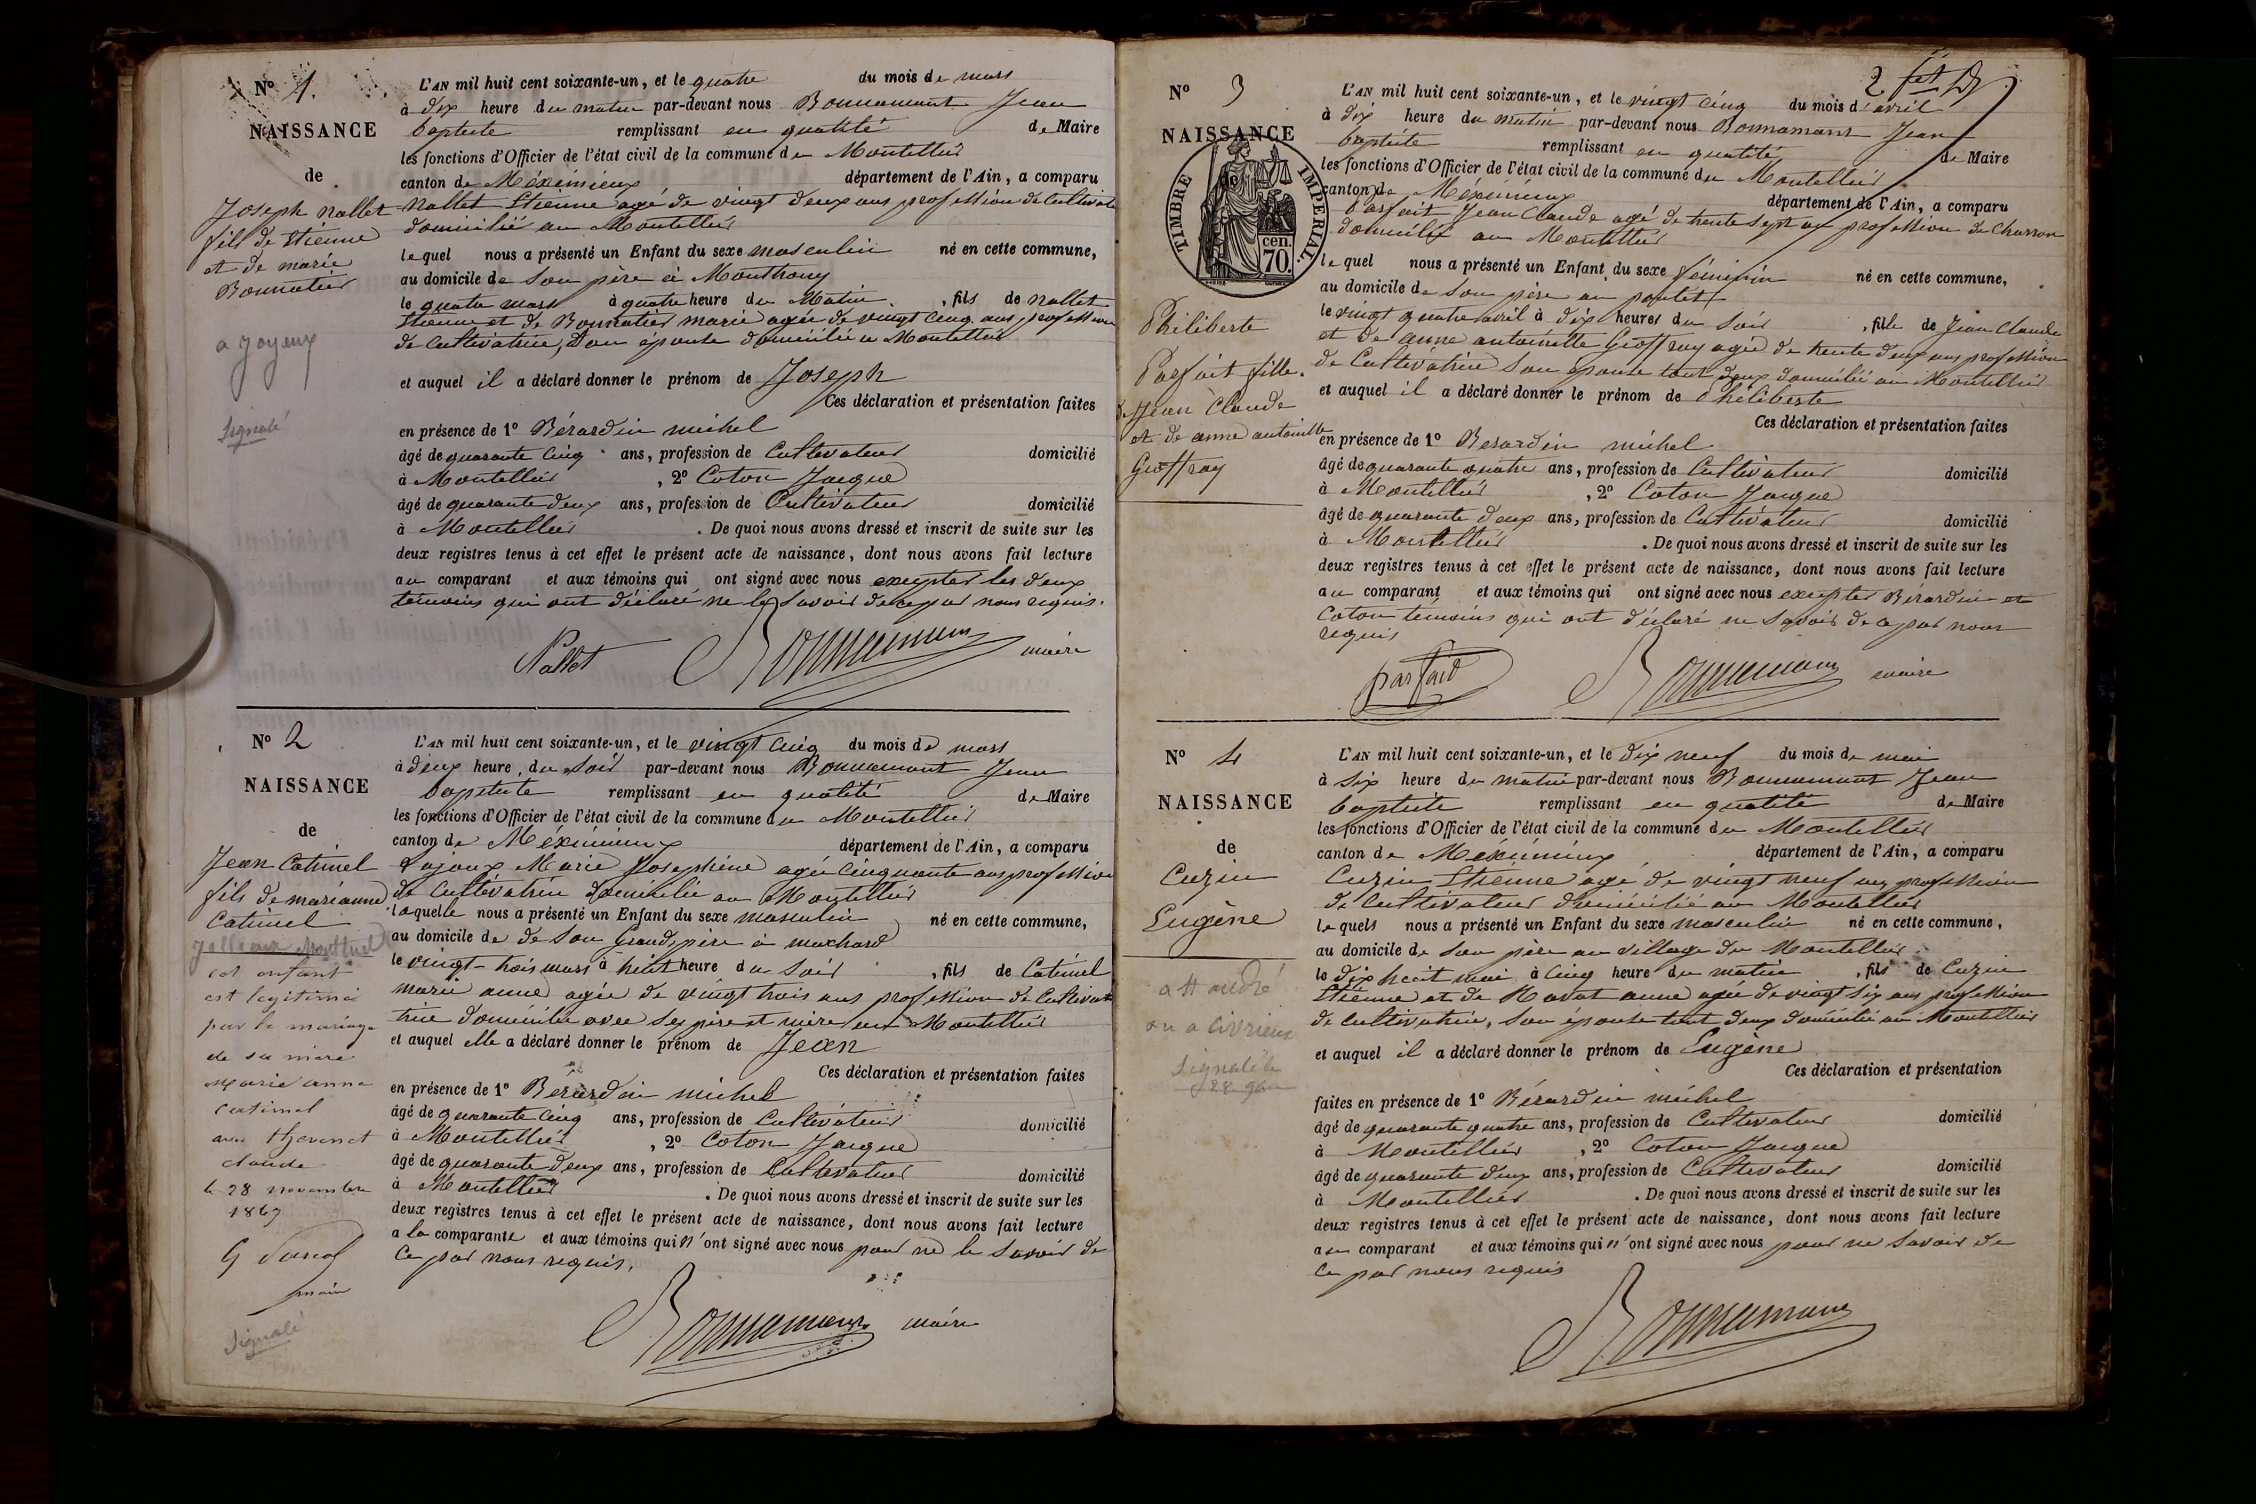 Nº 1.
NAISSANCE
de
Joseph Nallet
fils de Etienne
et de marie
Bonnatier
a joyeux
Signalé
L'AN mil huit cent soixante-un, et le quatre du mois de mars
à dix heure du matin par-devant nous Bonnamant Jean
baptiste remplissant en qualité de Maire
les fonctions d'Officier de l'état civil de la commune du Montellier
canton de Méximieux département de l'Ain, a comparu
Nallet Etienne agé de vingt deux ans profession de Cultivat
domicilié au Montellier
lequel nous a présenté un Enfant du sexe masculin né en cette commune,
au domicile de son père à Monthouy
le quatre mars à quatre heure du Matin, fils de Nallet
Etienne et de Bonnatier marie agée de vingt cinq ans profession
de Cultivatrice, son épouse domiciliée a Montellier
et auquel il a déclaré donner le prénom de Joseph
Ces déclaration et présentation faites
en présence de 1º Bérardin michel
âgé de quarante cinq ans, profession de Cultivateur domicilié
à Montellier, 2º Coton Jacque
âgé de quarante deux ans, profession de Cultivateur domicilié
à Montellier. De quoi nous avons dressé et inscrit de suite sur les
deux registres tenus à cet effet le présent acte de naissance, dont nous avons fait lecture
au comparant et aux témoins qui ont signé avec nous excepter les deux
temoins qui ont déclaré ne le savoir de ce par nous requis.
Nallet Bonnamant maire
Nº 2
NAISSANCE
de
Jean Catimel
fils de marianne
Catimel
cet enfant
est legitimé
par le mariage
de sa mère
Marie anne
catimel
avec thevenet
claude
le 28 novembre
1867
maire
Signalé
L'AN mil huit cent soixante-un, et le vingt cinq du mois de mars
à deux heure, du soir par-devant nous Bonnamant Jean
baptiste remplissant en qualité de Maire
les fonctions d'Officier de l'état civil de la commune du Montellier
canton de Méximieux département de l'Ain, a comparu
Lajoux Marie Josephine agée cinquante ans profession
de Cultivatrice domiciliée au Montellier
laquelle nous a présenté un Enfant du sexe masculin né en cette commune,
au domicile de de son Grand père à machard
le vingt-trois mars à huit heure du soir, fils de Catimel
marie anne agée de vingt trois ans profession de Cultiva
trice domiciliée avec ses père et mère au Montellier
et auquel elle a déclaré donner le prénom de Jean
Ces déclaration et présentation faites
en présence de 1º Bérardin michel
âgé de quarante cinq ans, profession de Cultivateur domicilié
à Montellier, 2º Coton Jacque
âgé de quarante deux ans, profession de Cultivateur domicilié
à Montellier. De quoi nous avons dressé et inscrit de suite sur les
deux registres tenus à cet effet le présent acte de naissance, dont nous avons fait lecture
a la comparante et aux témoins qui n'ont signé avec nous pour ne le savoir de
ce par nous requis.
Bonnamant maire
2
Nº 3
NAISSANCE
de
TIMBRE IMPERIAL
cen. 70.
Philiberte
Parfait fille
Jean Claude
et de anne antoinette
Geoffray
L'AN mil huit cent soixante-un, et le vingt cinq du mois d'avril
à dix heure du matin par-devant nous Bonnamant Jean
baptiste remplissant en qualité de Maire
les fonctions d'Officier de l'état civil de la commune du Montellier
canton de Méximieux département de l'Ain, a comparu
Parfait Jean Claude agé de trente sept ans profession de Charron
domicilié au Montellier
lequel nous a présenté un Enfant du sexe féminin né en cette commune,
au domicile de son père au
le vingt quatre avril à dix heures du soir, fille de Jean Claude
et de anne antoinette Geoffray agée de trente deux ans profession
de Cultivatrice son epouse tout deux domiciliée au Montellier
et auquel il a déclaré donner le prénom de Philiberte
Ces déclaration et présentation faites
en présence de 1º Berardin michel
âgé de quarante quatre ans, profession de Cultivateur domicilié
à Montellier, 2º Coton Jacque
âgé de quarante deux ans, profession de Cultivateur domicilié
à Montellier. De quoi nous avons dressé et inscrit de suite sur les
deux registres tenus à cet effet le présent acte de naissance, dont nous avons fait lecture
au comparant et aux témoins qui ont signé avec nous excepter Bérardin et
Coton témoins qui ont déclaré ne savoir de ce par nous
requis
parfaid Bonnamant maire
Nº 4
NAISSANCE
de
Cuzin
Eugène
a St andré
ou a Civrieux
Signalé le
L'AN mil huit cent soixante-un, et le dix neuf du mois de mai
à six heure du matin par-devant nous Bonnamant Jean
baptiste remplissant en qualité de Maire
les fonctions d'Officier de l'état civil de la commune du Montellier
canton de Méximieux département de l'Ain, a comparu
Cuzin Etienne agé de vingt neuf ans profession
de Cultivateur domicilié au Montellier
lequels nous a présenté un Enfant du sexe masculin né en cette commune,
au domicile de son père au village du Montellier
le dix huit mai à cinq heure du matin, fils de Cuzin
Etienne et de Navat anne agée de vingt six ans profession
de Cultivatrice, son épouse tout deux domicilié au Montellier
et auquel il a déclaré donner le prénom de Eugène
Ces déclaration et présentation
faites en présence de 1º Bérardin michel
âgé de quarante quatre ans, profession de Cultivateur domicilié
à Montellier, 2º Coton Jacque
âgé de quarante deux ans, profession de Cultivateur domicilié
à Montellier. De quoi nous avons dressé et inscrit de suite sur les
deux registres tenus à cet effet le présent acte de naissance, dont nous avons fait lecture
au comparant et aux témoins qui n'ont signé avec nous pour ne savoir de
ce par nous requis
Bonnamant